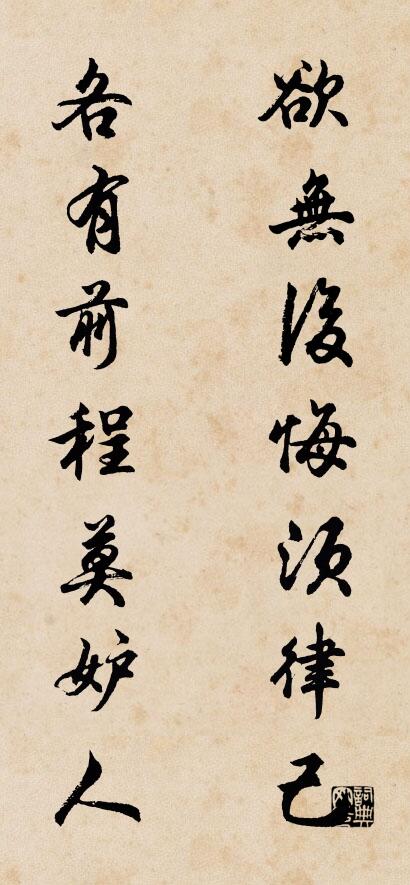 欲無後悔須律己
各有前程莫妒人